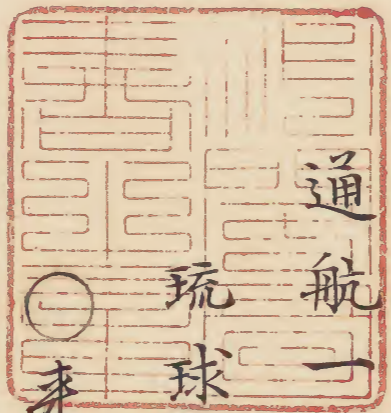 通航一
琉球
来